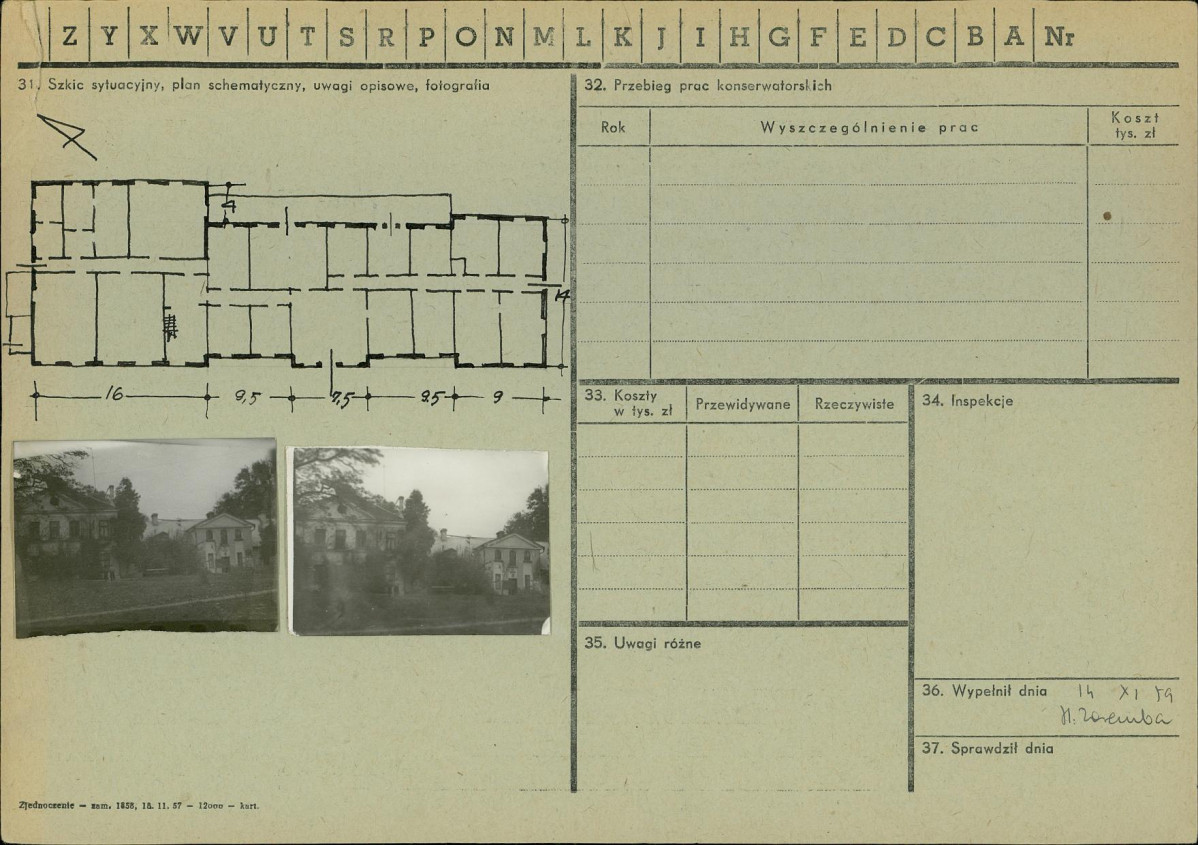 Z Y X W V U T S R P O N M L K J I H G F E D C B A Nr
31. Szkic sytuacyjny, plan schematyczny, uwagi opisowe, fotografia
4
14
16 9,5 7,5 9.5 9
Zjednoczenie — zam. 1858, 18. 11. 57 — 12000 — kart.
32. Przebieg prac konserwatorskich
Rok Wyszczególnienie prac Koszt
tys. zł
33. Koszty
w tys. zł Przewidywane Rzeczywiste
34. Inspekcje
35. Uwagi różne
36. Wypełnił dnia 14 XI 59
H. Zaremba
37. Sprawdził dnia